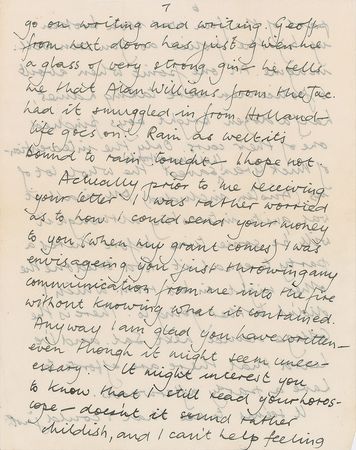 7
go on writing and writing. Geoff
from next door has just given me
a glass of very strong gin – he tells
me that Alan Williams from the Jac.
had it smuggled in from Holland –
life goes on. Rain as well its
bound to rain tonight – I hope not.
Actually prior to me receiving
your letter I was rather worried
as to how I could send your money
to you (when my grant comes) I was
envisageing you just throwing any
communication from me into the fire
without knowing what it contained.
Anyway I am glad you have written –
even though it might seem unnec-
essary. It might interest you
to know that I still read your horos-
cope – doesn't it sound rather
childish, and I can't help feeling